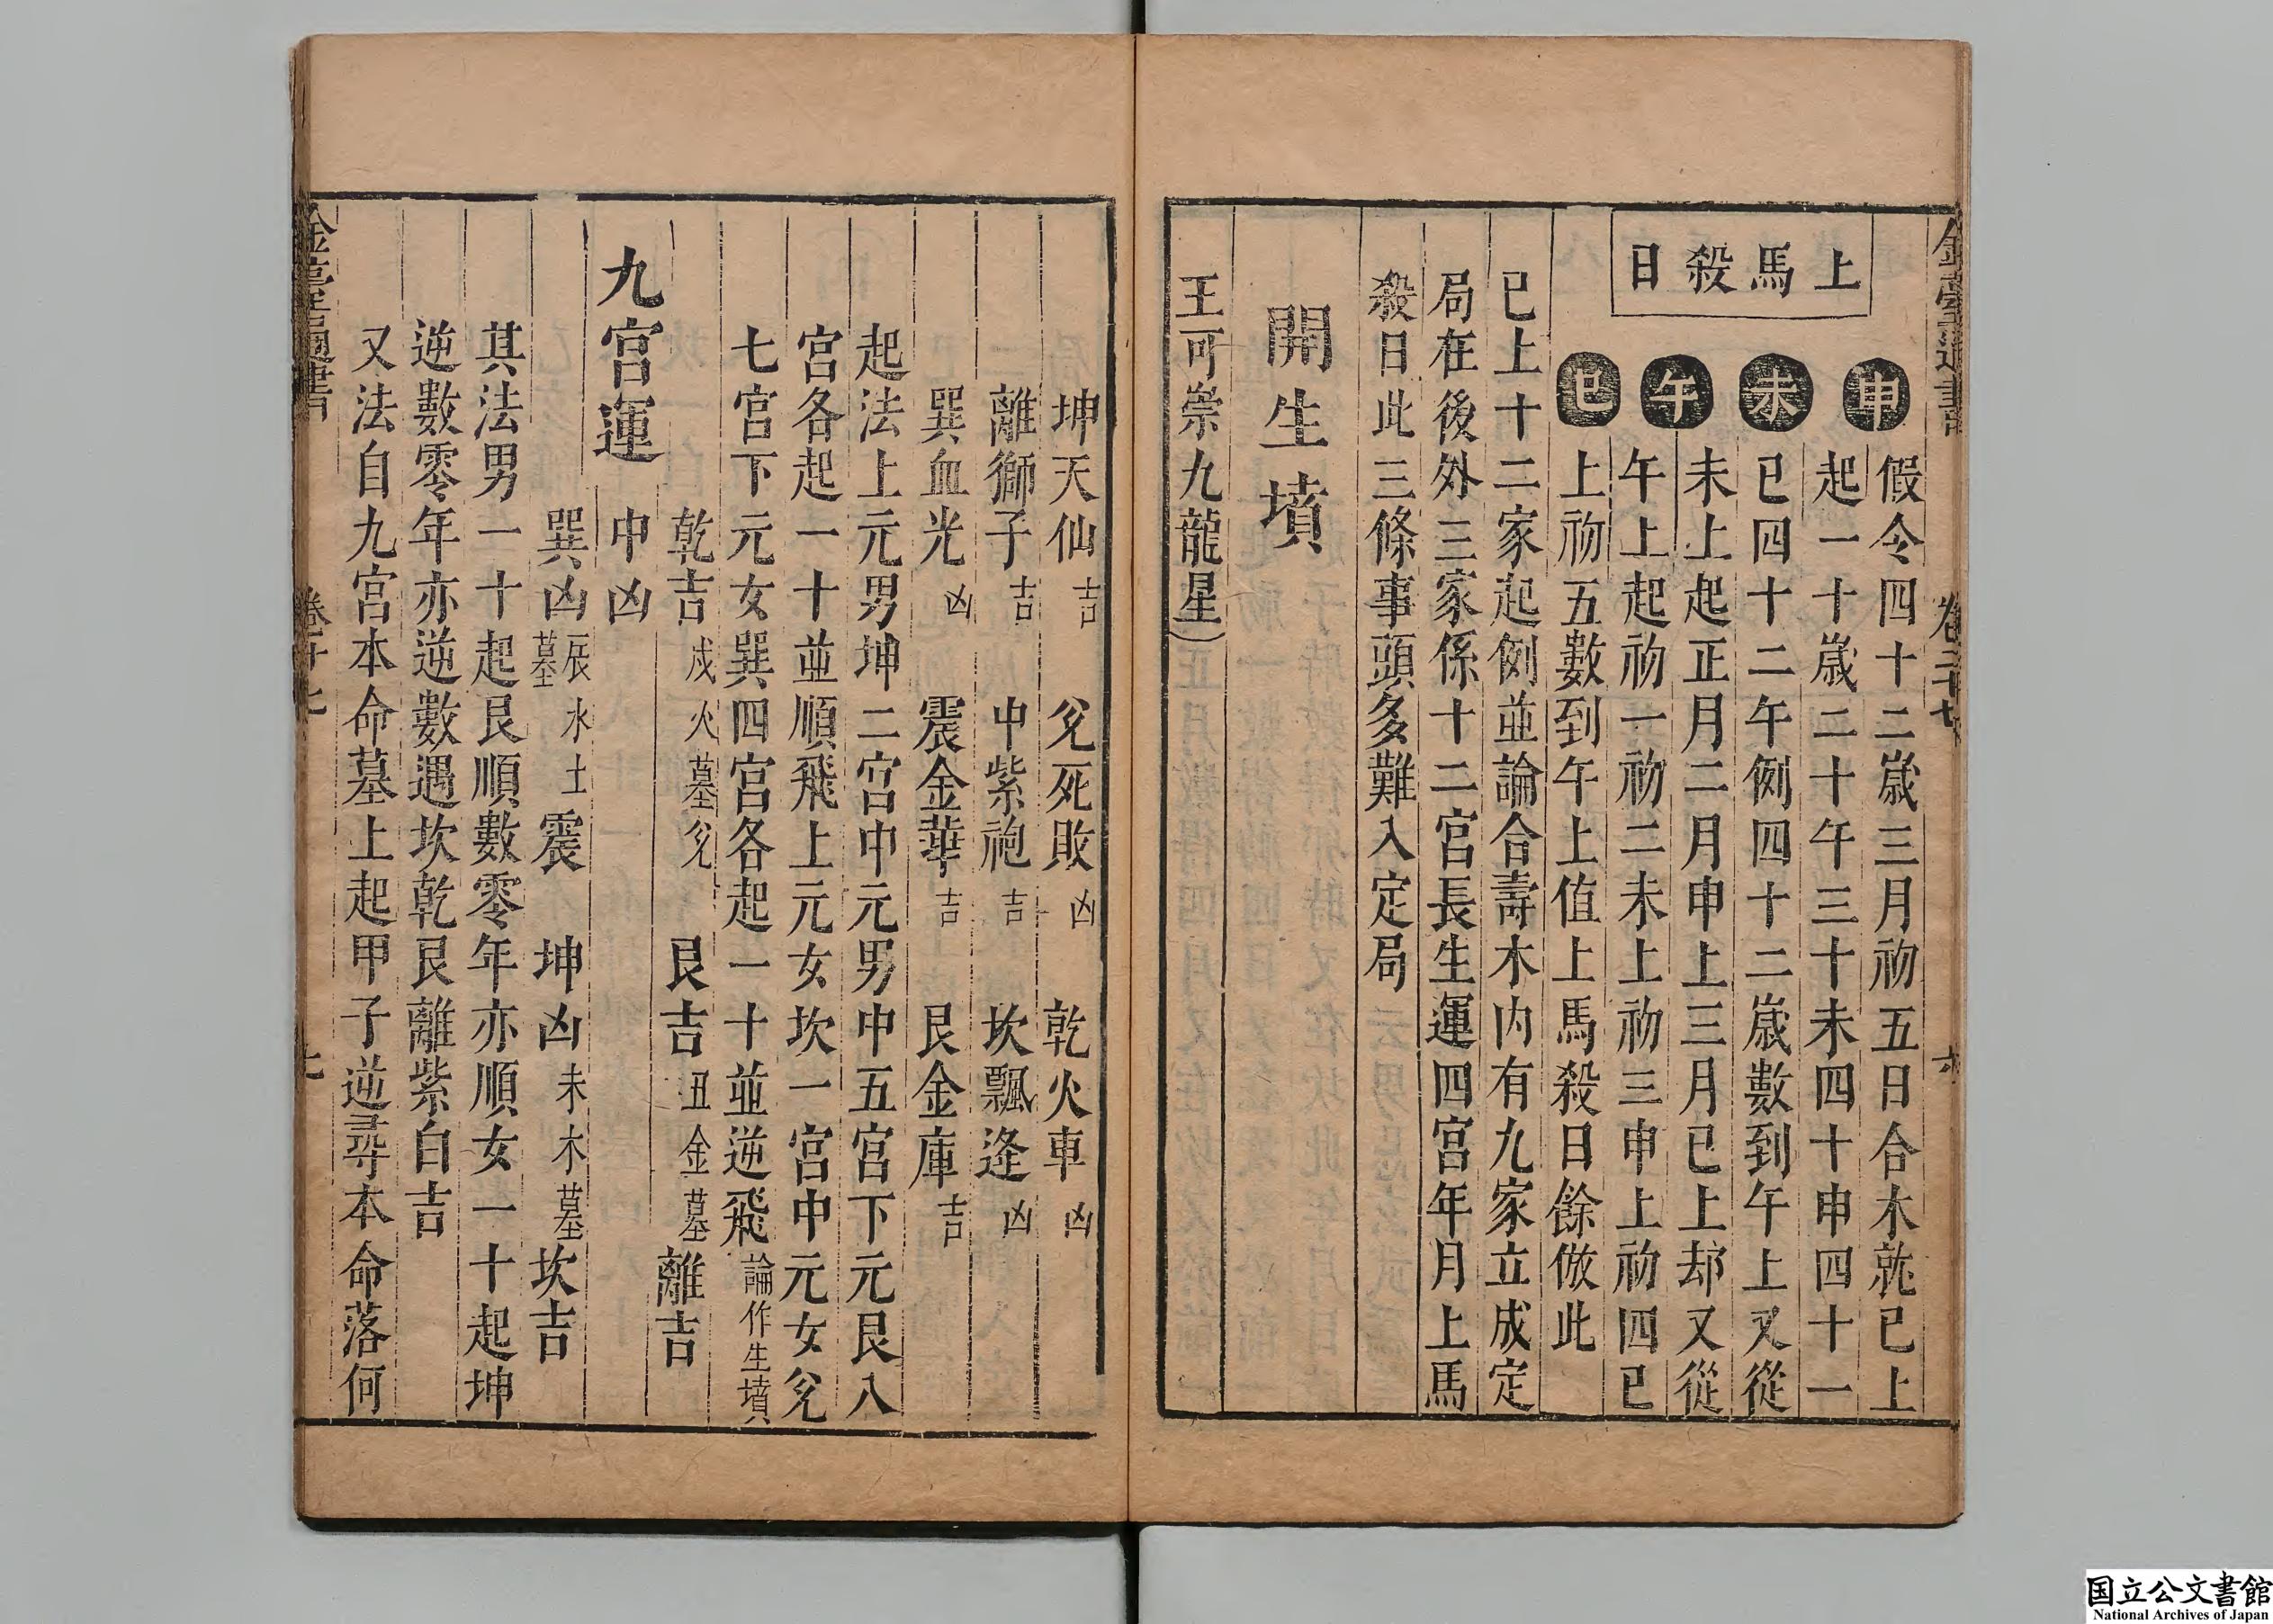 上馬殺日
申
未
午
巳
假令四十二歳三月初五日合木就巳上
起一十歳二十午三十未四十申四十一
巳四十二午例四十二歳數到午上又從
未上起正月二月申上三月巳上却又從
午上起初一初二未上初三申上初四巳
上初五數到午上值上馬殺日餘倣此
已上十二家起例並論合壽木内有九家立成定
局在後外三家係十二宮長生運四宮年月上馬
殺日此三條事頭多難入定局
開生墳
王可崇九龍星
卷二十七
坤天仙吉 兌死敗凶 乾火車凶
離獅子吉 中紫袍吉 坎飄逢凶
巽血光凶 震金華吉 艮金庫吉
起法上元男坤二宮中元男中五宮下元艮八
宮各起一十並順飛上元女坎一宮中元女兌
七宮下元女巽四宮各起一十並逆飛論作生墳
乾吉戌火墓兌 艮吉丑金墓離吉
九宮運 中凶
巽凶辰水土墓震 坤凶未木墓坎吉
其法男一十起艮順數零年亦順女一十起坤
逆數零年亦逆數遇坎乾艮離紫白吉
又法自九宮本命墓上起甲子逆尋本命落何
金臺通書